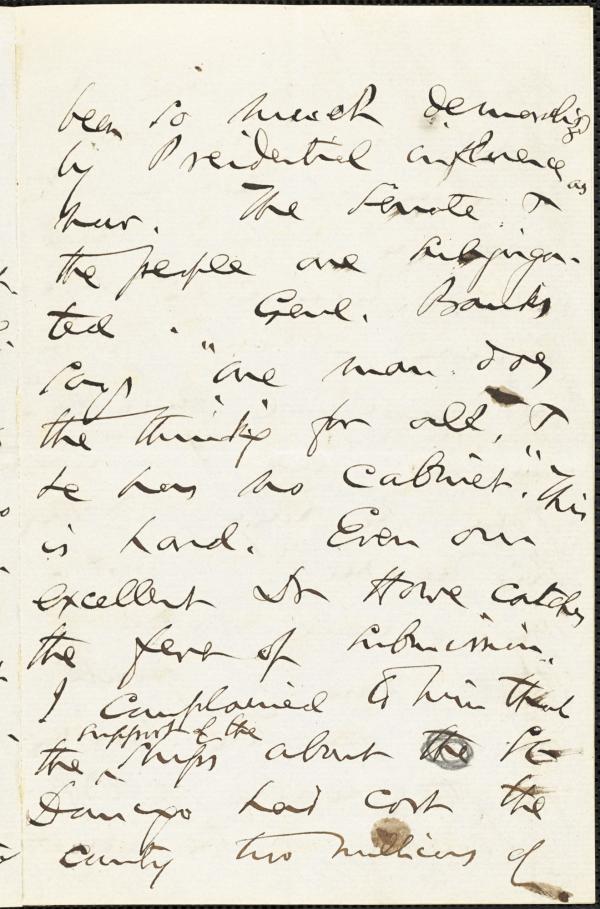 been so much demoraliz
by Presidential influence as
now. The Senate &
the people are subjuga-
ted. Genl. Banks
says "one man does
the thinking for all, &
he has no cabinet." This
is hard. Even our
excellent Dr Howe catches
the fever of submission.
I complained to him that
support of the
the ships about the St
Domingo had cost the
country two millions of